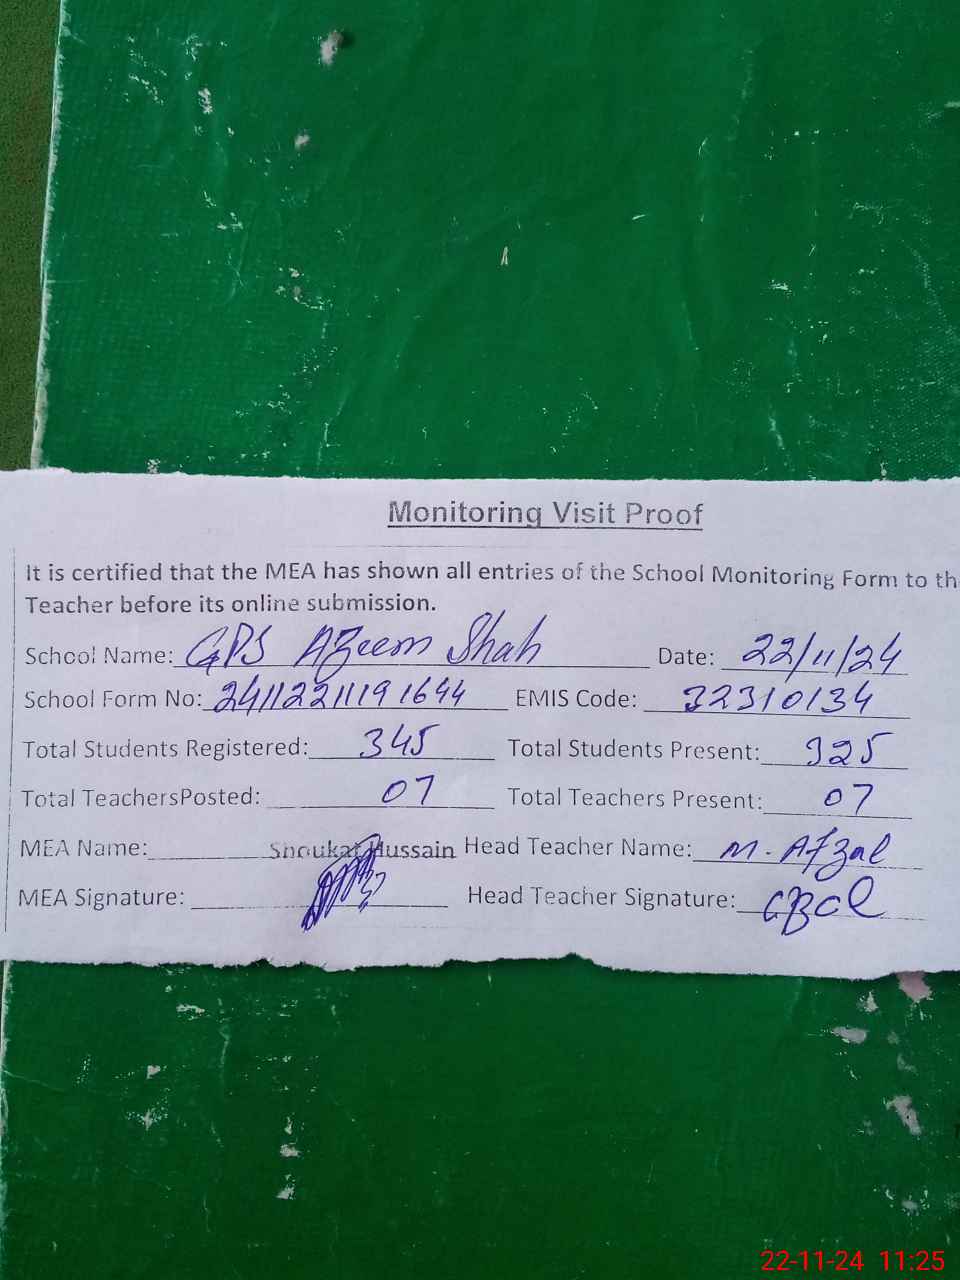 Monitoring Visit Proof
It is certified that the MEA has shown all entries of the School Monitoring Form to th
Teacher before its online submission.
School Name: GPS Azeem Shah Date: 22/11/24
School Form No: 241122111191644 EMIS Code: 32310134
Total Students Registered: 345 Total Students Present: 325
Total TeachersPosted: 07 Total Teachers Present: 07
MEA Name: Shoukat Hussain Head Teacher Name: M. Afzal
MEA Signature: Head Teacher Signature:
22-11-24 11:25